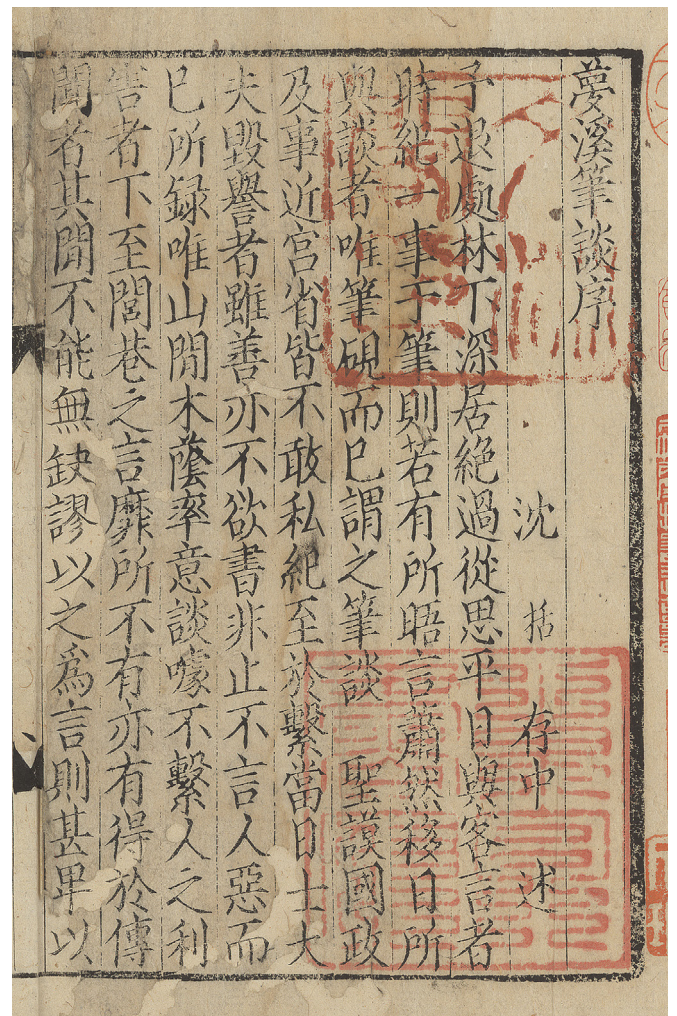 夢溪筆談序
沈 括 存中 述
予退處林下深居絶過從思平日與客言者
時紀一事于筆則若有所晤言蕭然移日所
與談者唯筆硯而已謂之筆談 聖謨國政
及事近宫省皆不敢私紀至於繫當日士大
夫毀譽者雖善亦不欲書非止不言人惡而
已所録唯山閒木蔭率意談噱不繫人之利
害者下至閭巷之言靡所不有亦有得於傳
聞者其閒不能無缺謬以之爲言則甚卑以